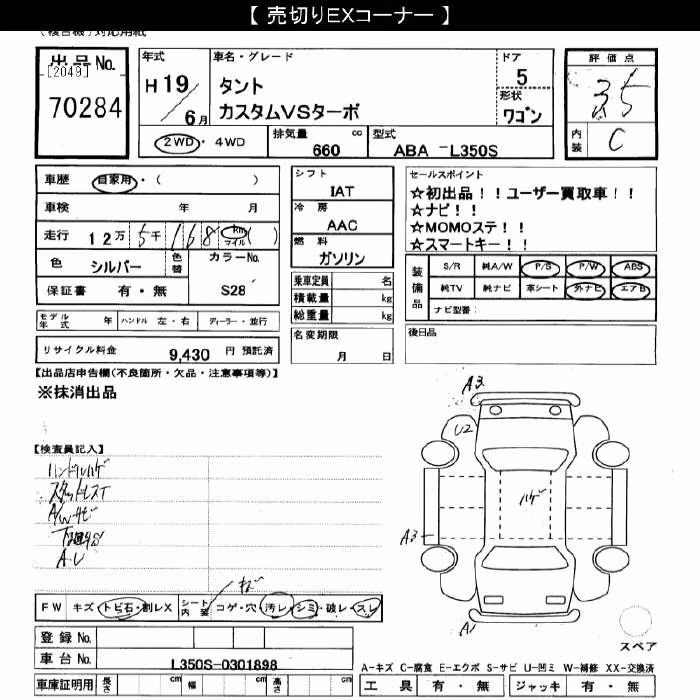 【 売切りEXコーナー 】
(複合機)対応用紙
出品No.
[2049]
70284
年式
H 19
6月
車名・グレード
タント
カスタムVSターボ
ドア
5
形状
ワゴン
評価点
3.5
内装
C
2WD・4WD
排気量 cc
660
型式
ABA -L350S
車歴 自家用・( )
車検 年 月
走行 12万 5千 168 km マイル ( )
色 シルバー 色替 カラーNo.
保証書 有・無 S28
モデル年式 年 ハンドル 左・右 ディーラー・並行
リサイクル料金 9,430 円 預託済
シフト
IAT
冷房
AAC
燃料
ガソリン
乗車定員 名
積載量 kg
総重量 kg
名変期限
月 日
セールスポイント
☆初出品!!ユーザー買取車!!
☆ナビ!!
☆MOMOステ!!
☆スマートキー!!
装備品
S/R 純A/W P/S P/W ABS
純TV 純ナビ 革シート 外ナビ エアB
ナビ型番:
後日品
【出品店申告欄(不良箇所・欠品・注意事項等)】
※抹消出品
【検査員記入】
ハンドルハゲ
スタットレスT
A/Wサビ
A3
U2
ハゲ
A3
A1
スペア
FW キズ・トビ石・割レX シート内装 コゲ・穴・汚レ・シミ・破レ・スレ
登録No.
車台No. L350S-0301898
車庫証明用 長さ cm 幅 cm 高さ cm
A-キズ C-腐食 E-エクボ S-サビ U-凹ミ W-補修 XX-交換済
工具 有・無 ジャッキ 有・無